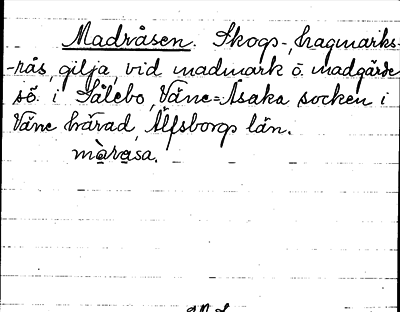 Madråsen. Skogs-, hagmarks-
-rås, gilja, vid madmark o. madgärde
sö. i Sålebo, Väne=Åsaka socken i
Väne härad, Älfsborgs län.
màrasa.